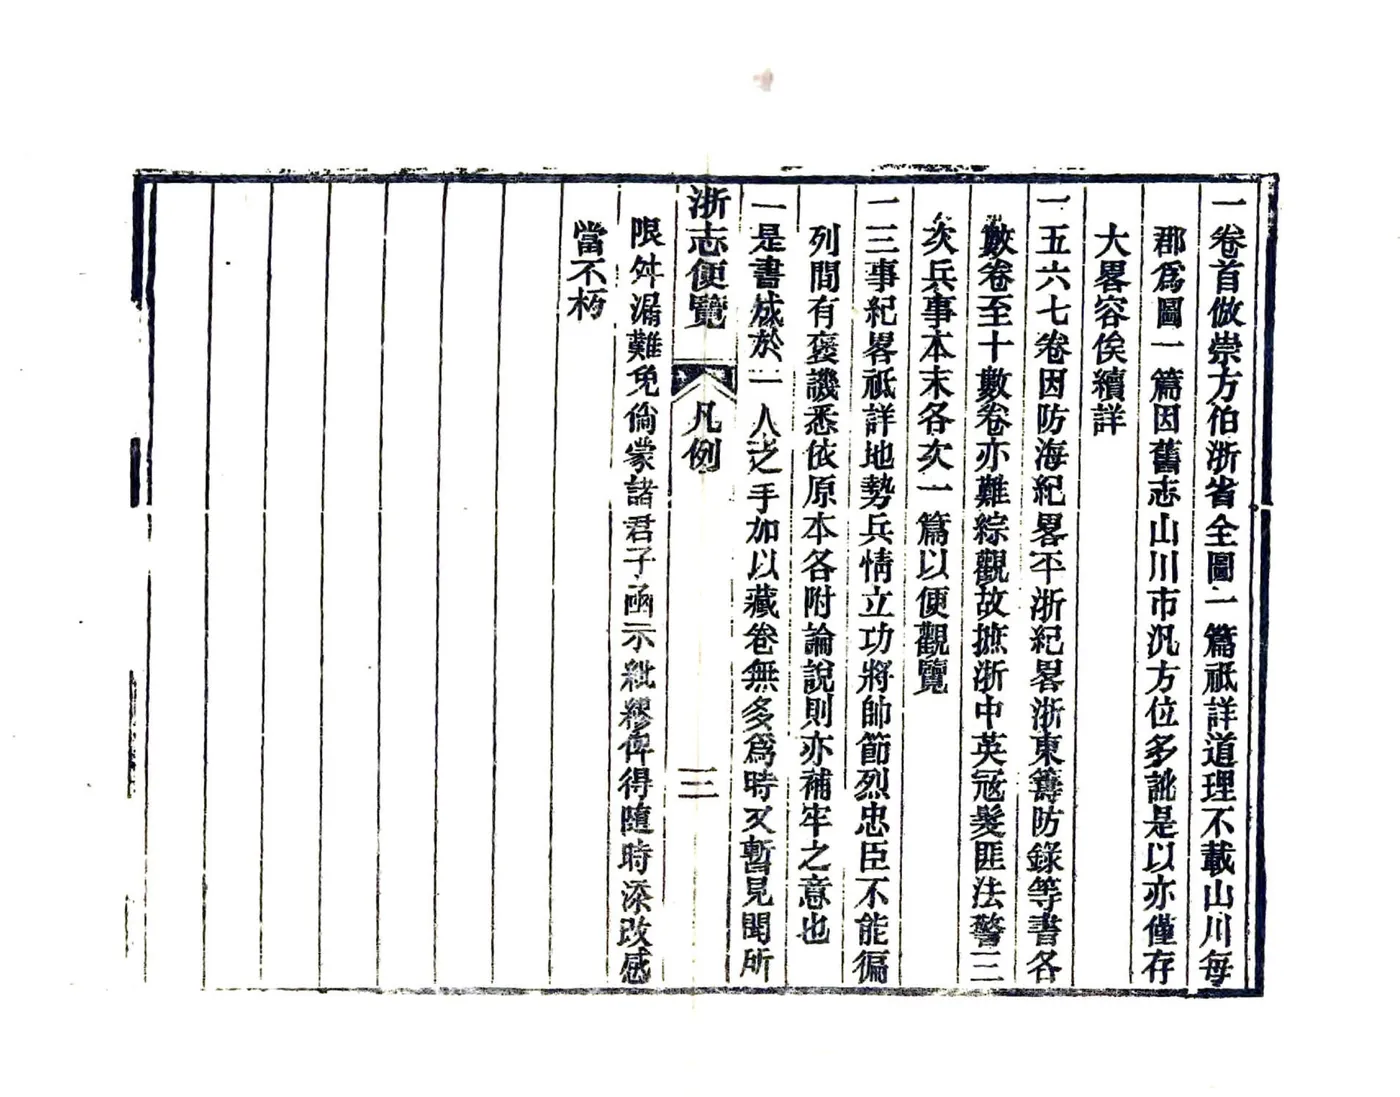 一卷首倣崇方伯浙省全圖一篇祇詳道理不載山川每
郡爲圖一篇因舊志山川市汛方位多訛是以亦僅存
大畧容俟續詳
一五六七卷因防海紀畧平浙紀畧浙東籌防錄等書各
數卷至十數卷亦難綜觀故摭浙中英寇髮匪法警三
次兵事本末各次一篇以便觀覽
一三事紀畧祇詳地勢兵情立功將帥節烈忠臣不能徧
列間有褒譏悉依原本各附論說則亦補牢之意也
一是書成於一人之手加以藏卷無多爲時又暫見聞所
浙志便覽 凡例 三
限舛漏難免倘蒙諸君子函示紕繆俾得隨時添改感
當不朽